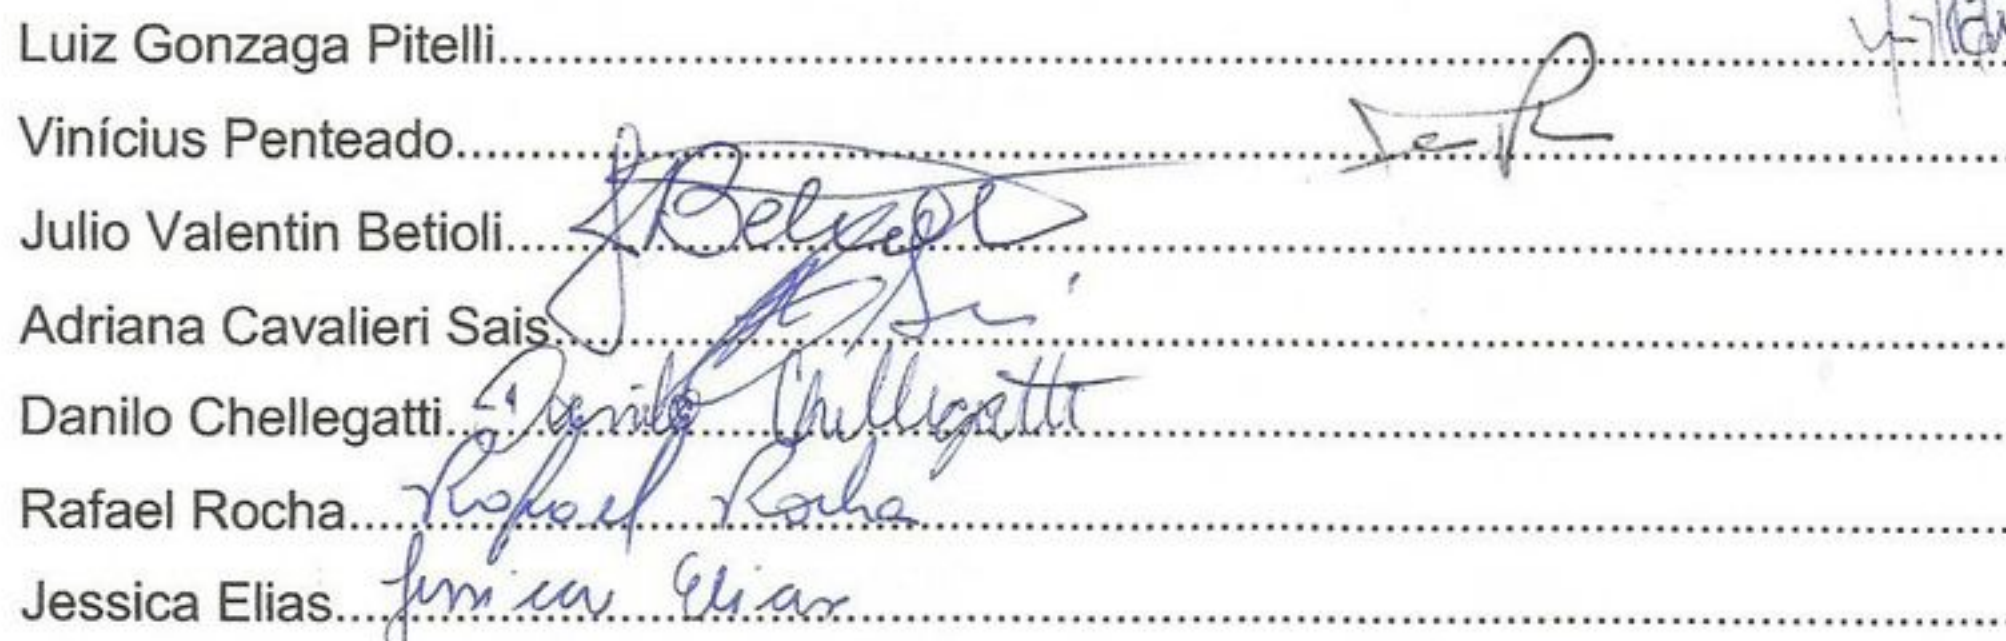 Luiz Gonzaga Pitelli
Vinícius Penteado
Julio Valentin Betioli
Adriana Cavalieri Sais
Danilo Chellegatti Danilo Chellegatti
Rafael Rocha Rafael Rocha
Jessica Elias Jessica Elias